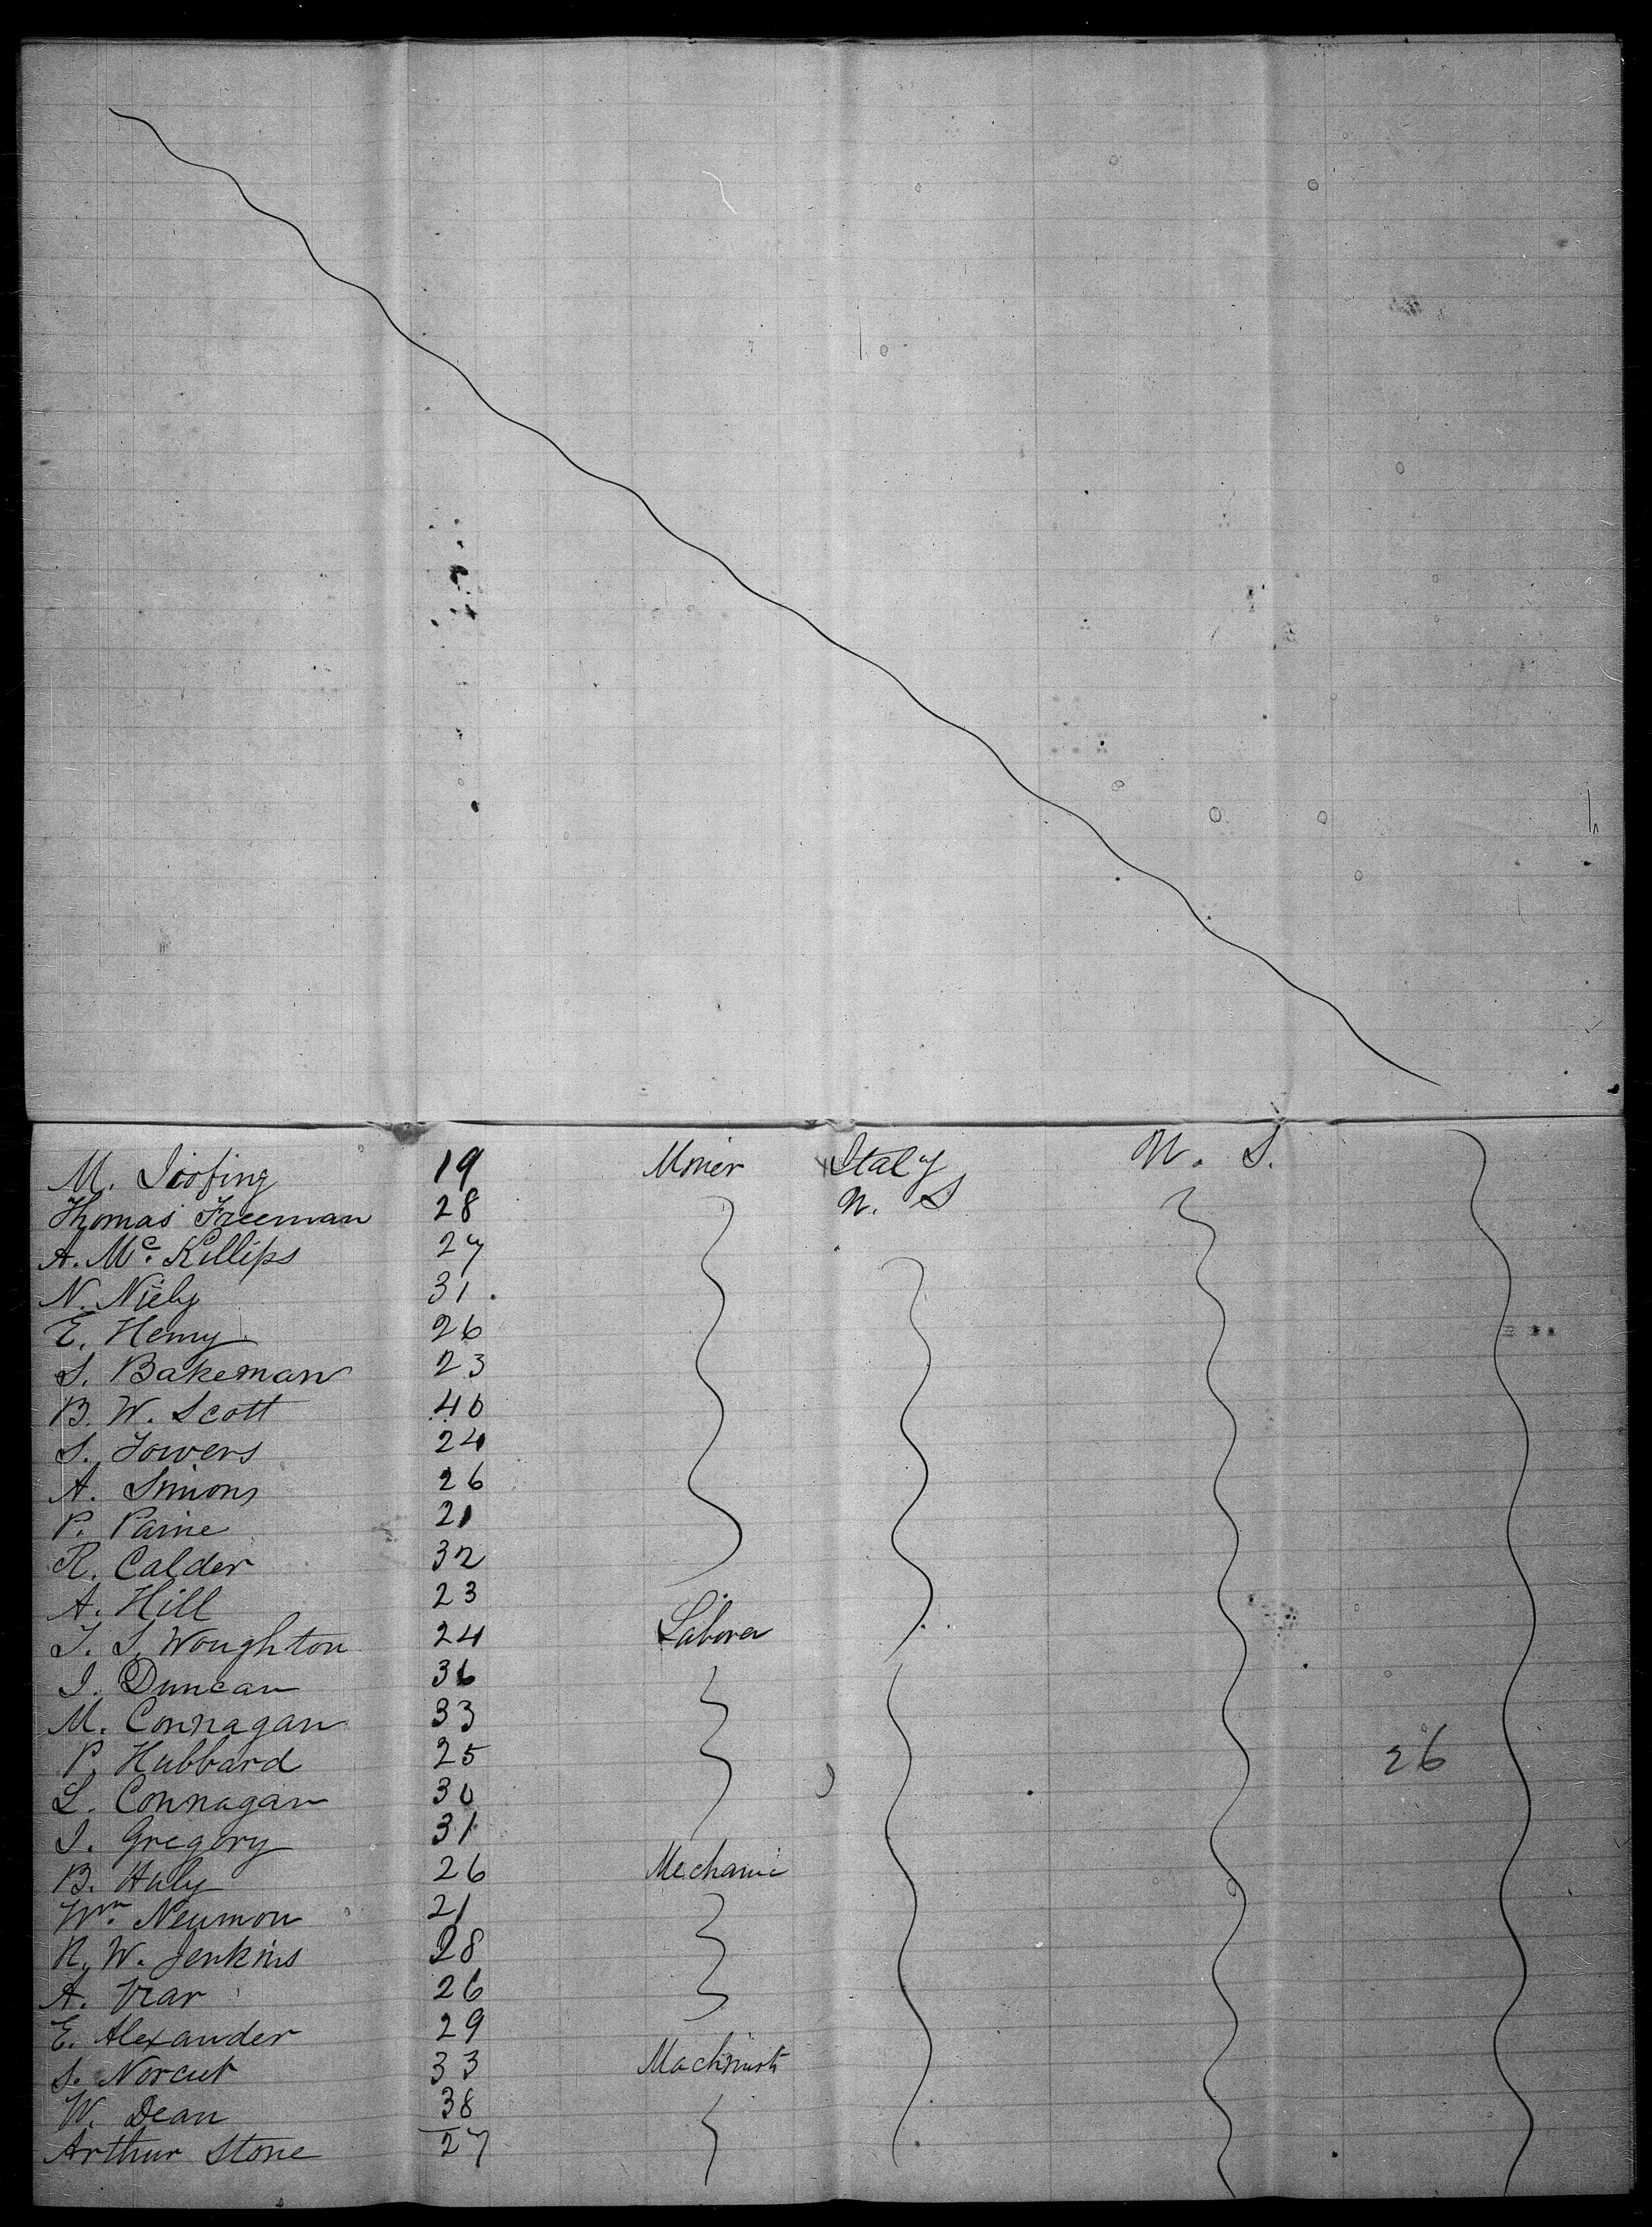 M. 19 Miner Italy U. S.
Thomas Freeman 28 U. S
A. Mc. Killips 27
N. Niely 31.
E. Henry 26
S. Bakeman 23
B. W. Scott 40
S. Towers 24
A. Simons 26
P. Paine 21
R. Calder 32
A. Hill 23
T. S. Woughton 24 Laborer
J. Duncan 36
M. Connagan 33
P. Hubbard 25 26
L. Connagan 30
J. Gregory 31
B. Haly 26 Mechanic
Wm. Neumon 21
R. W. Jenkins 28
A. 26
E. Alexander 29
S. Norcut 33 Machinist
W. Dean 38
Arthur Stone 27